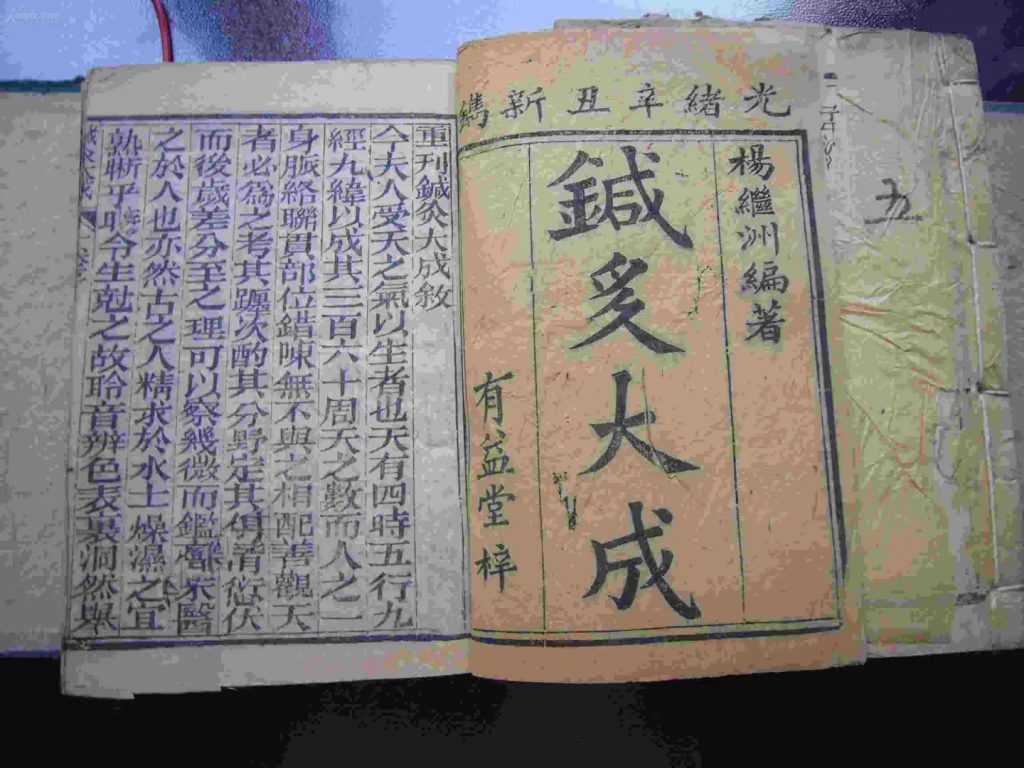 五
光緒辛丑新鐫
楊繼洲編著
鍼灸大成
有益堂梓
重刊鍼灸大成敘
今夫人受天之氣以生者也天有四時五行九
經九緯以成其三百六十周天之數而人之一
身脈絡聯貫部位錯陳無不與之相配善觀天
者必為之考其躔次酌其分野定其清愆伏
而後歲差分至之理可以察幾微而鑑醫
之於人也亦然古之人精求於水土燥濕之宜
熟晰乎時令生尅之故聆音辨色表裏洞然舉